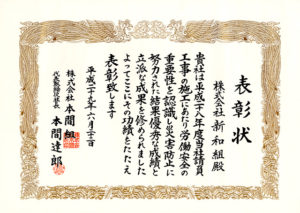 表彰状
株式会社 新和組殿
貴社は平成二十八年度当社請負
工事の施工にあたり労働安全の
重要性を認識し災害防止に
努力された結果優秀な成績と
立派な成果を修められました
よってここにその功績をたたえ
表彰致します
平成二十九年六月二十二日
株式会社 本間組
代表取締役社長 本間達郎